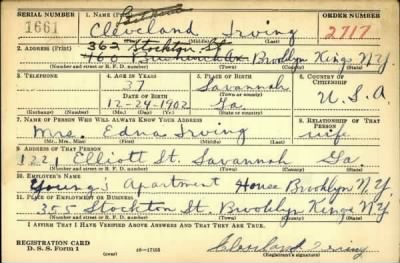 SERIAL NUMBER 1. NAME (Print) ORDER NUMBER
1661 Cleveland Irving 2717
(First) (Middle) (Last)
2. ADDRESS (Print) 362 Stockton St
Brooklyn Kings N.Y
(Number and street or R. F. D. number) (Town) (County) (State)
3. TELEPHONE 4. AGE IN YEARS 5. PLACE OF BIRTH 6. COUNTRY OF CITIZENSHIP
37 Savannah
DATE OF BIRTH (Town or county)
12-24-1902 Ga. U.S.A
(Exchange) (Number) (Mo.) (Day) (Yr.) (State or country)
7. NAME OF PERSON WHO WILL ALWAYS KNOW YOUR ADDRESS 8. RELATIONSHIP OF THAT PERSON
Mrs. Edna Irving wife
(Mr., Mrs., Miss) (First) (Middle) (Last)
9. ADDRESS OF THAT PERSON
1221 Elliott St. Savannah Ga
(Number and street or R. F. D. number) (Town) (County) (State)
10. EMPLOYER'S NAME
Young's Apartment House Brooklyn N.Y
11. PLACE OF EMPLOYMENT OR BUSINESS
355 Stockton St. Brooklyn Kings N.Y
(Number and street or R. F. D. number) (Town) (County) (State)
I AFFIRM THAT I HAVE VERIFIED ABOVE ANSWERS AND THAT THEY ARE TRUE.
REGISTRATION CARD
D. S. S. FORM 1 16-17105 Cleveland Irving
(Registrant's signature)